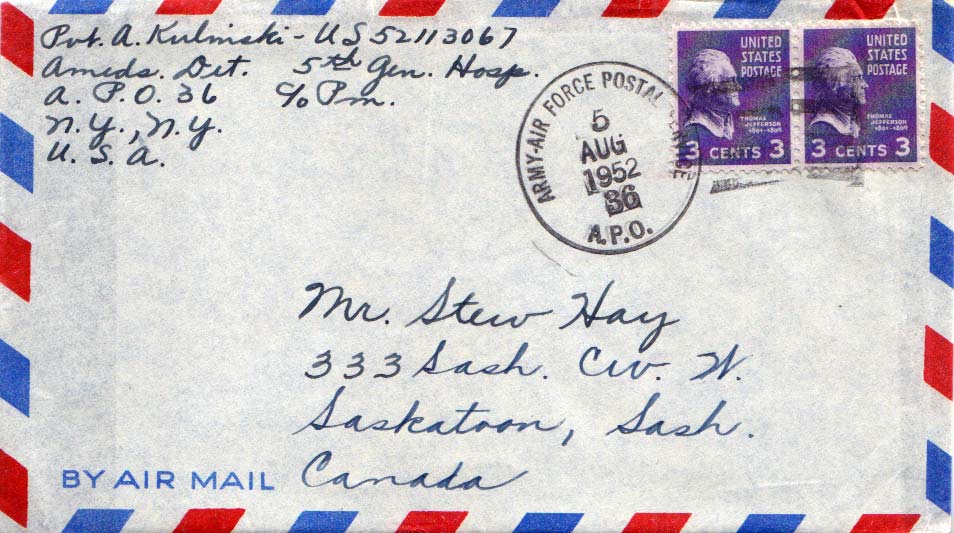 Pvt. A. Kulinski - US 52113067
Ameds. Det. 5th Gen. Hosp.
A. P.O. 36 c/o P.m.
N.Y., N.Y.
U. S. A.
ARMY-AIR FORCE POSTAL SERVICE
5
AUG
1952
36
A.P.O.
UNITED
STATES
POSTAGE
THOMAS
JEFFERSON
1801-1809
3 CENTS 3
UNITED
STATES
POSTAGE
THOMAS
JEFFERSON
1801-1809
3 CENTS 3
Mr. Stew Hay
333 Sask. Cov. W.
Saskatoon, Sask.
Canada
BY AIR MAIL